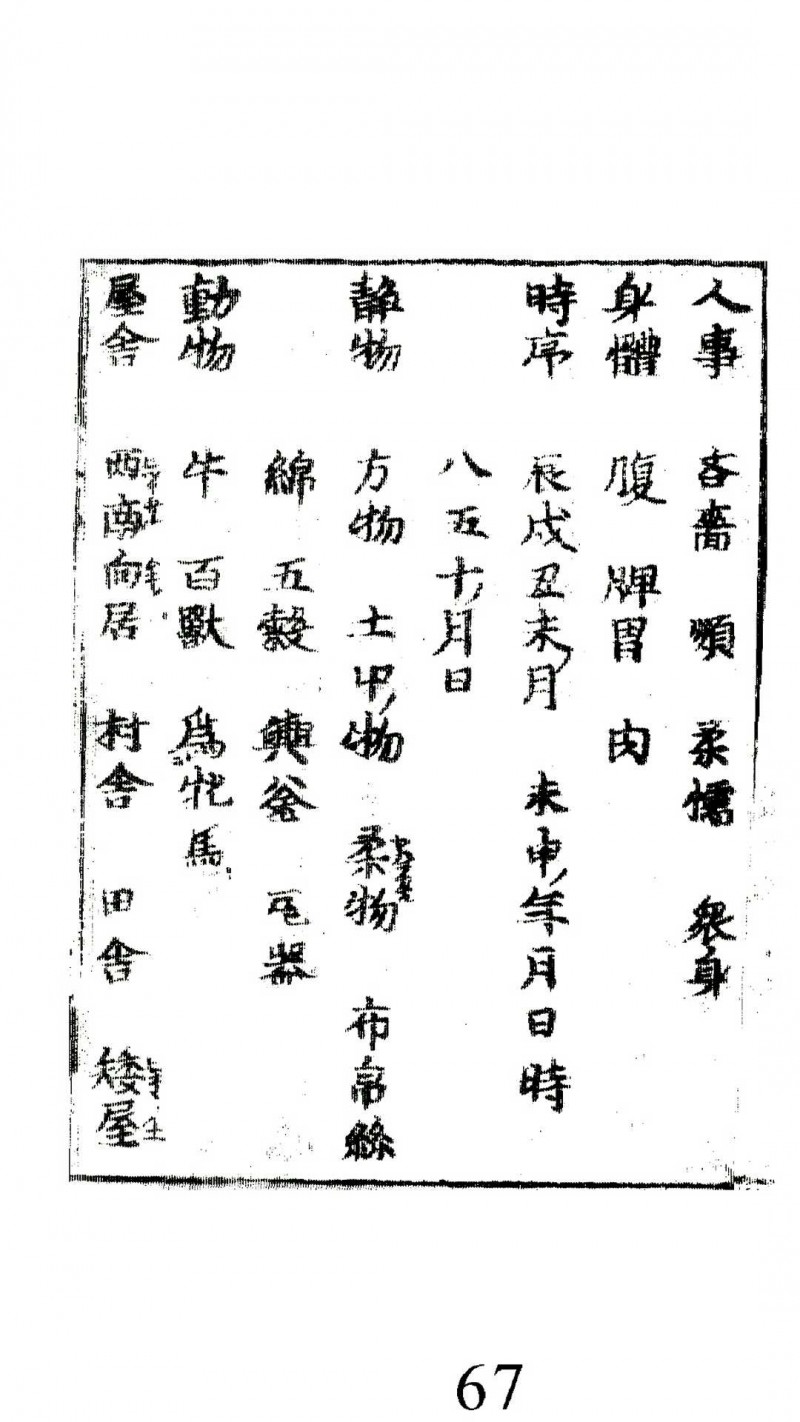 人事 吝嗇 頑 柔懦 衆身
身體 腹 脾胃 肉
時序 辰戌丑未月 未申年月日時
八五十月日
靜物 方物 土中物 柔物 布帛絲
綿 五穀 輿釜 瓦器
動物 牛 百獸 爲牝馬
屋舍 西南向居 村舍 田舍 矮屋
67